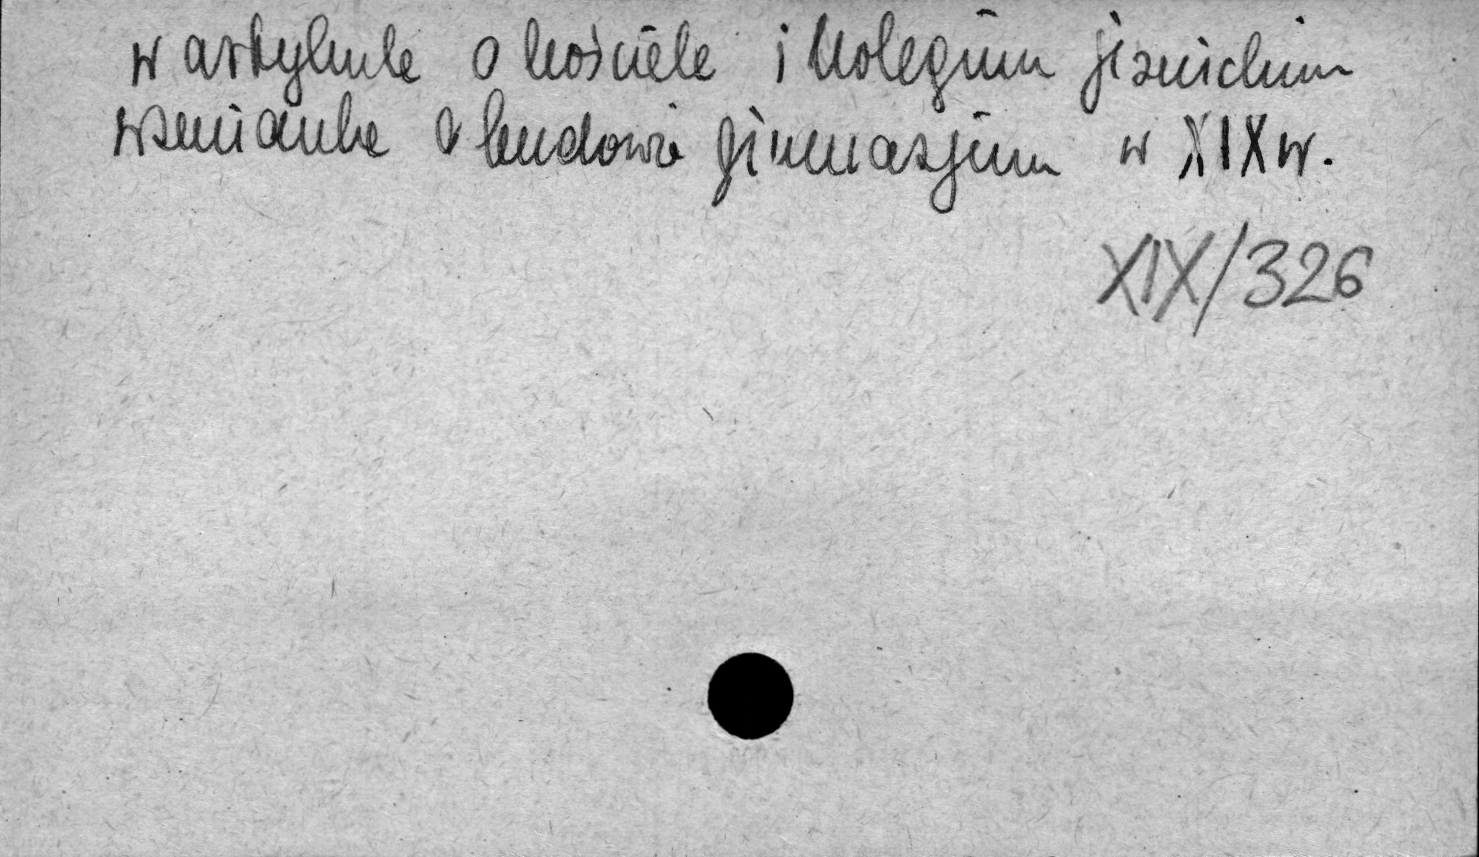 w artykule o kościele i kolegium jezuickim
wzmianka o budowie gimnazjum w XIX w.
XIX/326